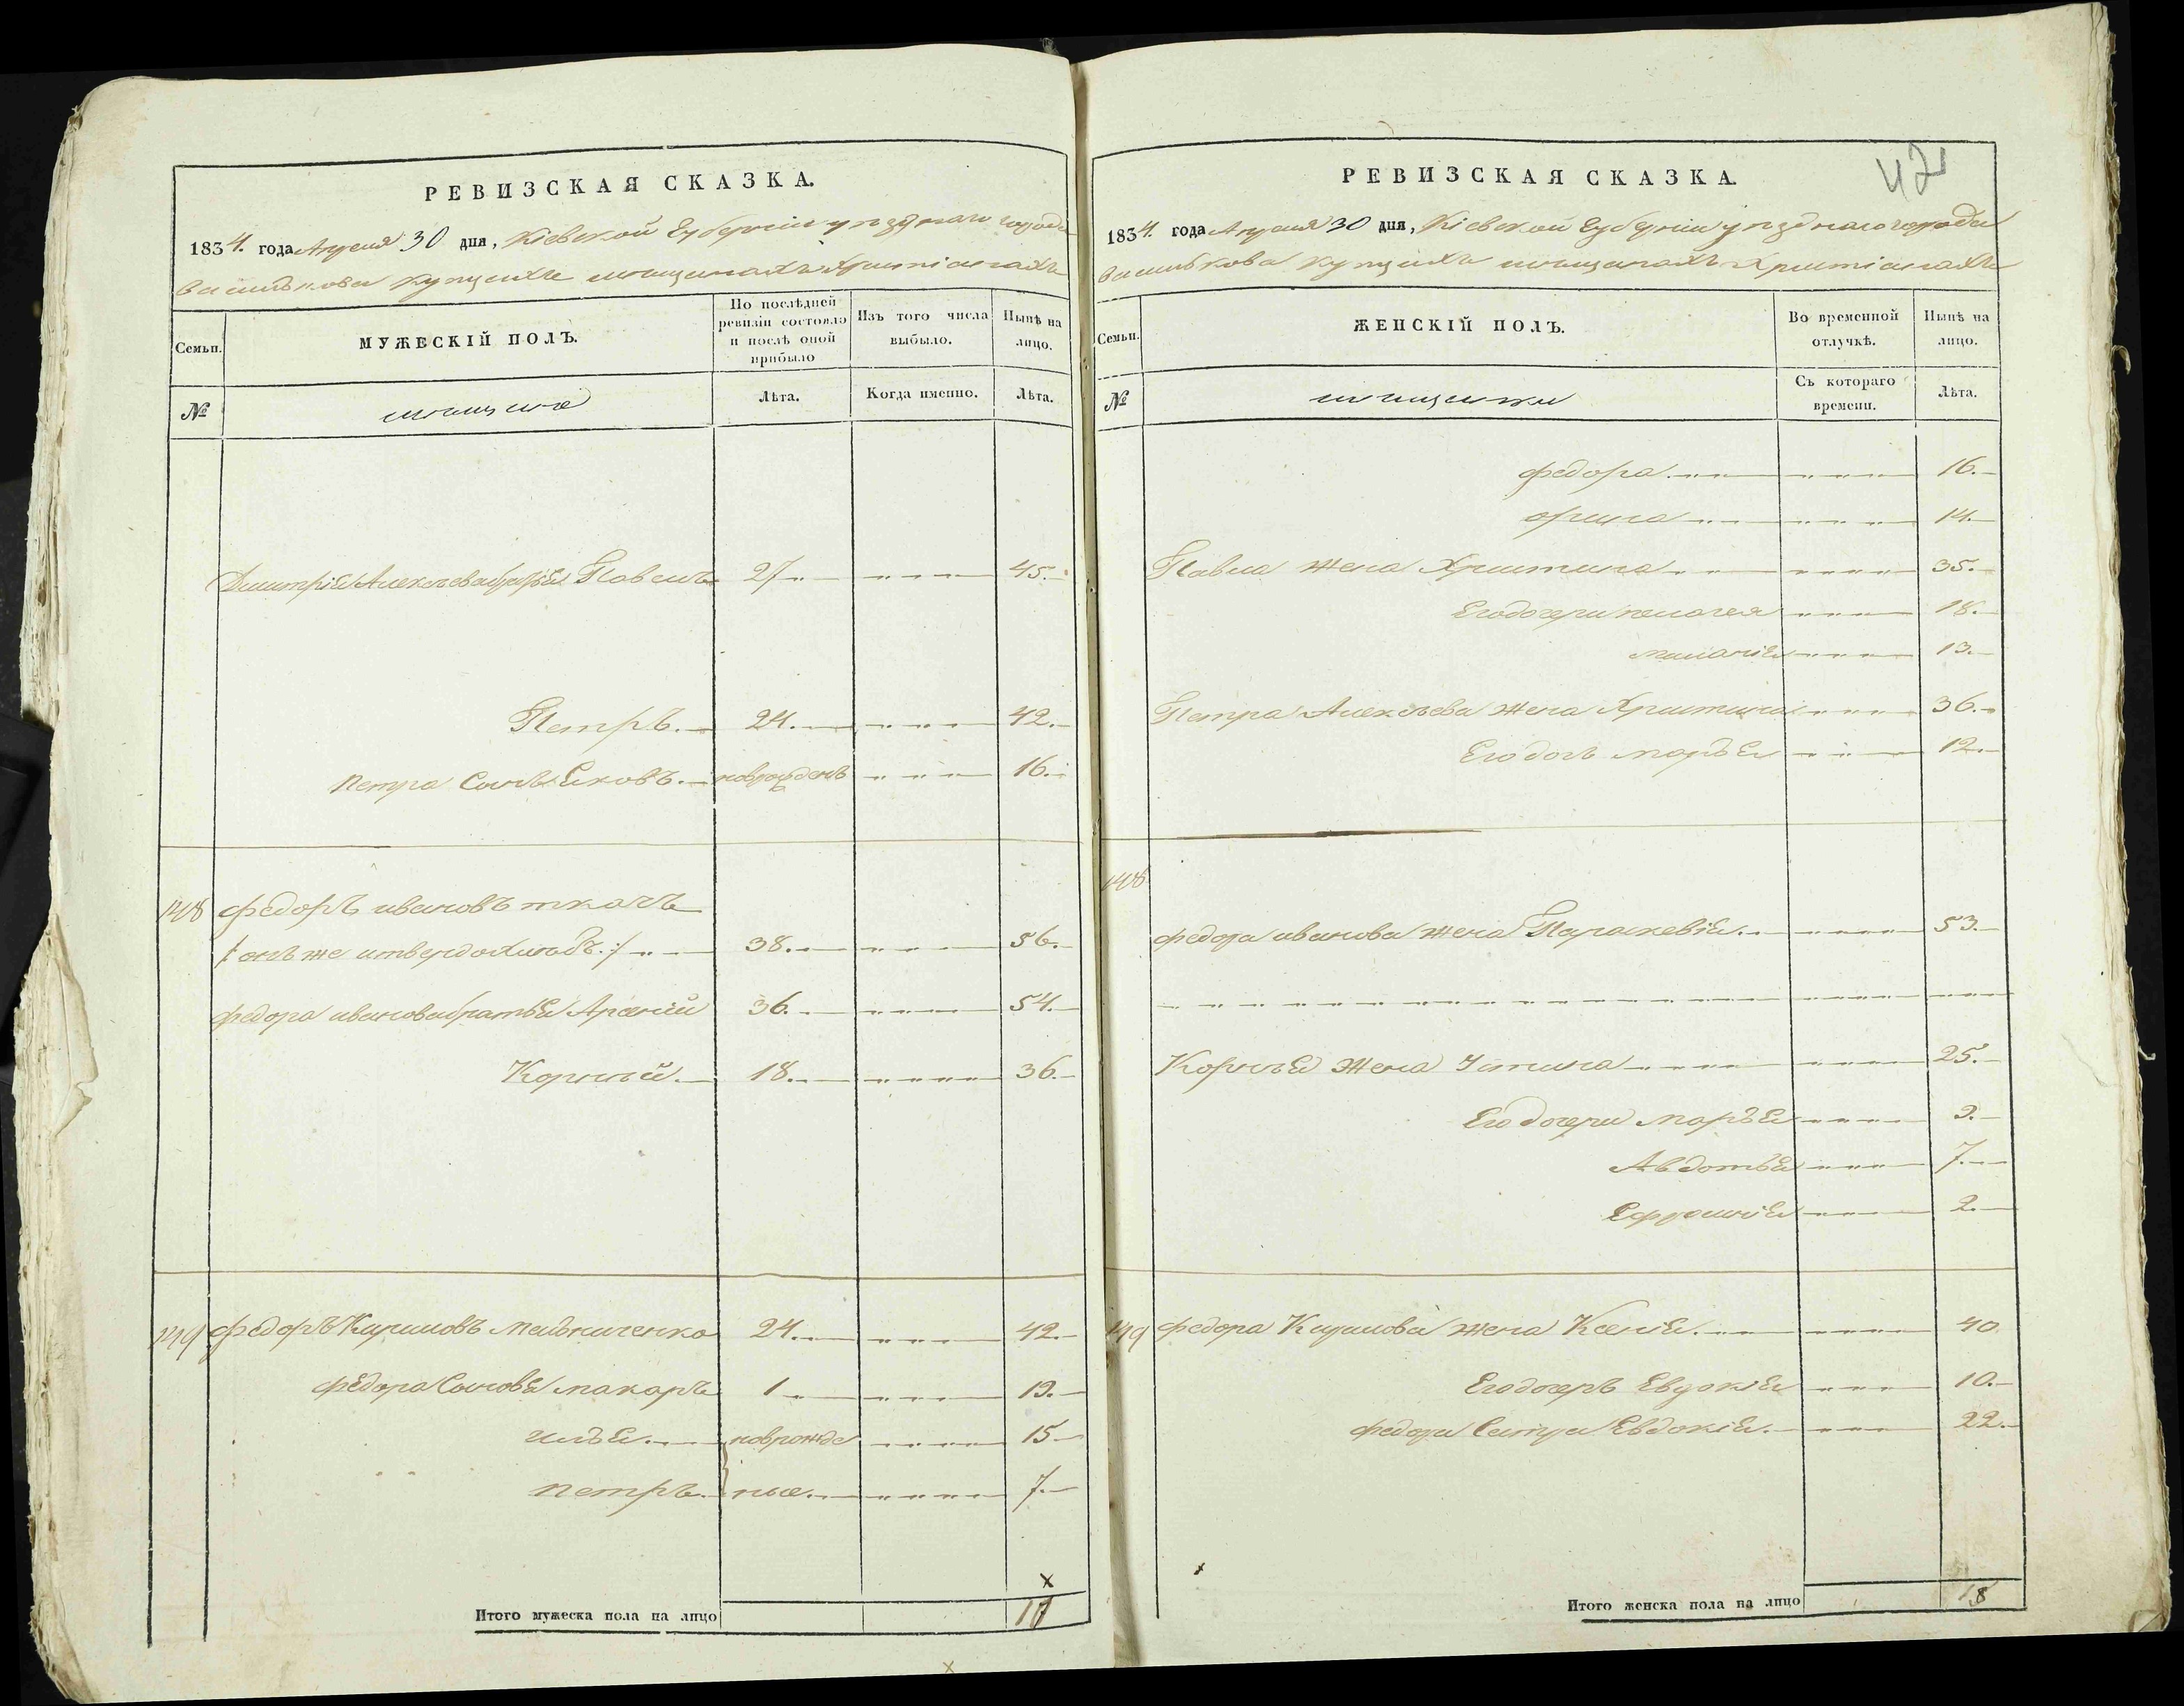 РЕВИЗСКАЯ СКАЗКА.
1834. года Апреля 30 дня, Кіевской Губерніи уѣзднаго города
Василькова купцахъ мещанахъ Христіанахъ
Семьи.
МУЖЕСКІЙ ПОЛЪ.
По послѣдней ревизіи состояло и послѣ оной прибыло
Изъ того числа выбыло.
Нынѣ на лицо.
№
мещане
Лѣта.
Когда именно.
Лѣта.
Дмитрія Алексѣева братья Павелъ 27 45.
Петръ. 24. 42.
Петра Сынъ Яковъ. новрожденъ 16.
148 Федоръ ивановъ ткачъ
/: онъ же итвердохлѣбъ :/ 38. 56.
Федора иванова братья Арсеній 36. 54.
Корнѣй. 18. 36.
149 Федоръ Кириловъ Мельниченко 24. 42.
Федора Сыновья макаръ 1 19.
илья новрожде 15
петръ ные. 7.
Итого мужеска пола на лицо
РЕВИЗСКАЯ СКАЗКА.
42
1834. года Апреля 30 дня, Кіевской Губерніи уѣзднаго города
Василькова купцахъ мещанахъ Христіанахъ
Семьи.
ЖЕНСКІЙ ПОЛЪ.
Во временной отлучкѣ.
Нынѣ на лицо.
№
мещанки
Съ котораго времени.
Лѣта.
федора 16.
орина 14.
Павла жена Христина 35.
Его дочери пелагея 18.
маланія 13.
Петра Алексѣева жена Христина 36.
Его дочь марья 12.
148
Федора иванова жена Параскевія 53.
Корнѣя жена Устина 25.
Его дочери марья 9.
Авдотья 7.
Ефросинія 2.
149 Федора Кирилова жена Ксенія. 40
Его дочерь Евдокія 10.
Федора Сестра Евдокія. 22.
Итого женска пола на лицо